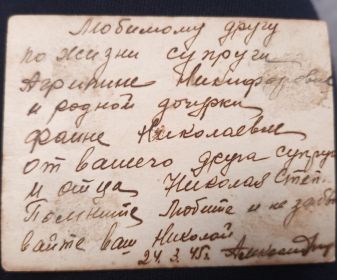 Любимому другу
по жизни супруги
Агрипине Никифоровне
и родной дочурки
Фаине Николаевне
от вашего друга супруга
и отца Николая Степ.
Помните Любите и не забы
вайте ваш Николай
24.3.45г.